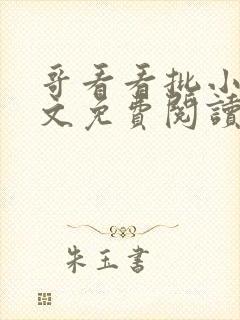 哥看看批小
文免費閱讀
朱玉書